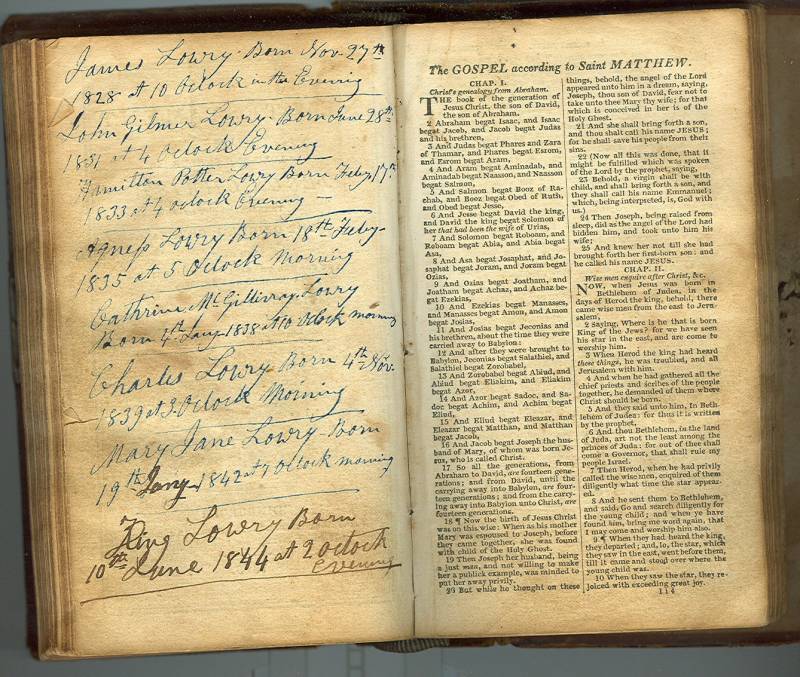 James Lowry Born Nov 27th
1828 at 10 Oclock in the Evening
John Gilmer Lowry Born June 28th
1831 at 4 Oclock Evening
Hamilton Potter Lowry Born Feby 17th
1833 at 4 oclock Evening
Agness Lowry Born 18th Feby
1835 at 5 Oclock Morning
Cathrine McGillivray Lowry
Born 4th Jany 1838 at 10 Oclock morning
Charles Lowry Born 4th Nov.
1839 at 3 Oclock Morning
Mary Jane Lowry Born
19th Jany 1842 at 7 Oclock morning
King Lowry Born
10th June 1844 at 2 oclock
evening
The GOSPEL according to Saint MATTHEW.
CHAP. I.
Christ's genealogy from Abraham.
THE book of the generation of
Jesus Christ, the son of David,
the son of Abraham.
2 Abraham begat Isaac, and Isaac
begat Jacob, and Jacob begat Judas
and his brethren,
3 And Judas begat Phares and Zara
of Thamar, and Phares begat Esrom,
and Esrom begat Aram,
4 And Aram begat Aminadab, and
Aminadab begat Naasson, and Naasson
begat Salmon,
5 And Salmon begat Booz of Ra-
chab, and Booz begat Obed of Ruth,
and Obed begat Jesse,
6 And Jesse begat David the king,
and David the king begat Solomon of
her that had been the wife of Urias,
7 And Solomon begat Roboam, and
Roboam begat Abia, and Abia begat
Asa,
8 And Asa begat Josaphat, and Jo-
saphat begat Joram, and Joram begat
Ozias,
9 And Ozias begat Joatham, and
Joatham begat Achaz, and Achaz be-
gat Ezekias,
10 And Ezekias begat Manasses,
and Manasses begat Amon, and Amon
begat Josias,
11 And Josias begat Jeconias and
his brethren, about the time they were
carried away to Babylon:
12 And after they were brought to
Babylon, Jeconias begat Salathiel, and
Salathiel begat Zorobabel,
13 And Zorobabel begat Abiud, and
Abiud begat Eliakim, and Eliakim
begat Azor,
14 And Azor begat Sadoc, and Sa-
doc begat Achim, and Achim begat
Eliud,
15 And Eliud begat Eleazar, and
Eleazar begat Matthan, and Matthan
begat Jacob,
16 And Jacob begat Joseph the hus-
band of Mary, of whom was born Je-
sus, who is called Christ.
17 So all the generations, from
Abraham to David, are fourteen gene-
rations; and from David, until the
carrying away into Babylon, are four-
teen generations; and from the carry-
ing away into Babylon unto Christ, are
fourteen generations.
18 ¶ Now the birth of Jesus Christ
was on this wise: When as his mother
Mary was espoused to Joseph, before
they came together, she was found
with child of the Holy Ghost.
19 Then Joseph her husband, being
a just man, and not willing to make
her a publick example, was minded to
put her away privily.
20 But while he thought on these
things, behold, the angel of the Lord
appeared unto him in a dream, saying,
Joseph, thou son of David, fear not to
take unto thee Mary thy wife; for that
which is conceived in her is of the
Holy Ghost.
21 And she shall bring forth a son,
and thou shalt call his name JESUS;
for he shall save his people from their
sins.
22 (Now all this was done, that it
might be fulfilled which was spoken
of the Lord by the prophet, saying,
23 Behold, a virgin shall be with
child, and shall bring forth a son, and
they shall call his name Emmanuel;
which, being interpreted, is, God with
us.)
24 Then Joseph, being raised from
sleep, did as the angel of the Lord had
bidden him, and took unto him his
wife;
25 And knew her not till she had
brought forth her first-born son: and
he called his name JESUS.
CHAP. II.
Wise men enquire after Christ, &c.
NOW, when Jesus was born in
Bethlehem of Judea, in the
days of Herod the king, behold, there
came wise men from the east to Jeru-
salem,
2 Saying, Where is he that is born
King of the Jews? for we have seen
his star in the east, and are come to
worship him.
3 When Herod the king had heard
these things, he was troubled, and all
Jerusalem with him.
4 And when he had gathered all the
chief priests and scribes of the people
together, he demanded of them where
Christ should be born.
5 And they said unto him, In Beth-
lehem of Judea: for thus it is written
by the prophet,
6 And thou Bethlehem, in the land
of Juda, art not the least among the
princes of Juda: for out of thee shall
come a Governor, that shall rule my
people Israel.
7 Then Herod, when he had privily
called the wise men, enquired of them
diligently what time the star appear-
ed.
8 And he sent them to Bethlehem,
and said, Go and search diligently for
the young child; and when ye have
found him, bring me word again, that
I may come and worship him also.
9 ¶ When they had heard the king,
they departed; and, lo, the star, which
they saw in the east, went before them,
till it came and stood over where the
young child was.
10 When they saw the star, they re-
joiced with exceeding great joy.
114